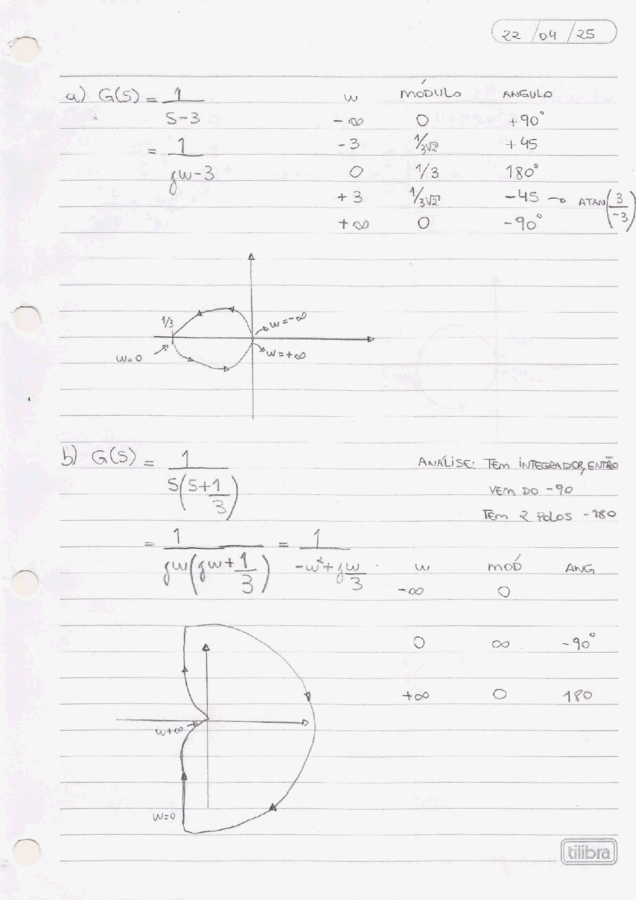 22 / 04 / 25
a) G(S) = 1 / S-3
= 1 / jw-3
w MÓDULO ANGULO
-∞ 0 +90°
-3 1/3√2 +45
0 1/3 180°
+3 1/3√2 -45 → ATAN(3/-3)
+∞ 0 -90°
1/3
w=-∞
w=0
w=+∞
b) G(S) = 1 / S(S+1/3)
ANÁLISE: TEM INTEGRADOR, ENTÃO
VEM DO -90
TEM 2 POLOS -180
= 1 / jw(jw+1/3) = 1 / -w²+jw/3
w MOD ANG
-∞ 0
0 ∞ -90°
+∞ 0 180
w+∞
w=0
tilibra